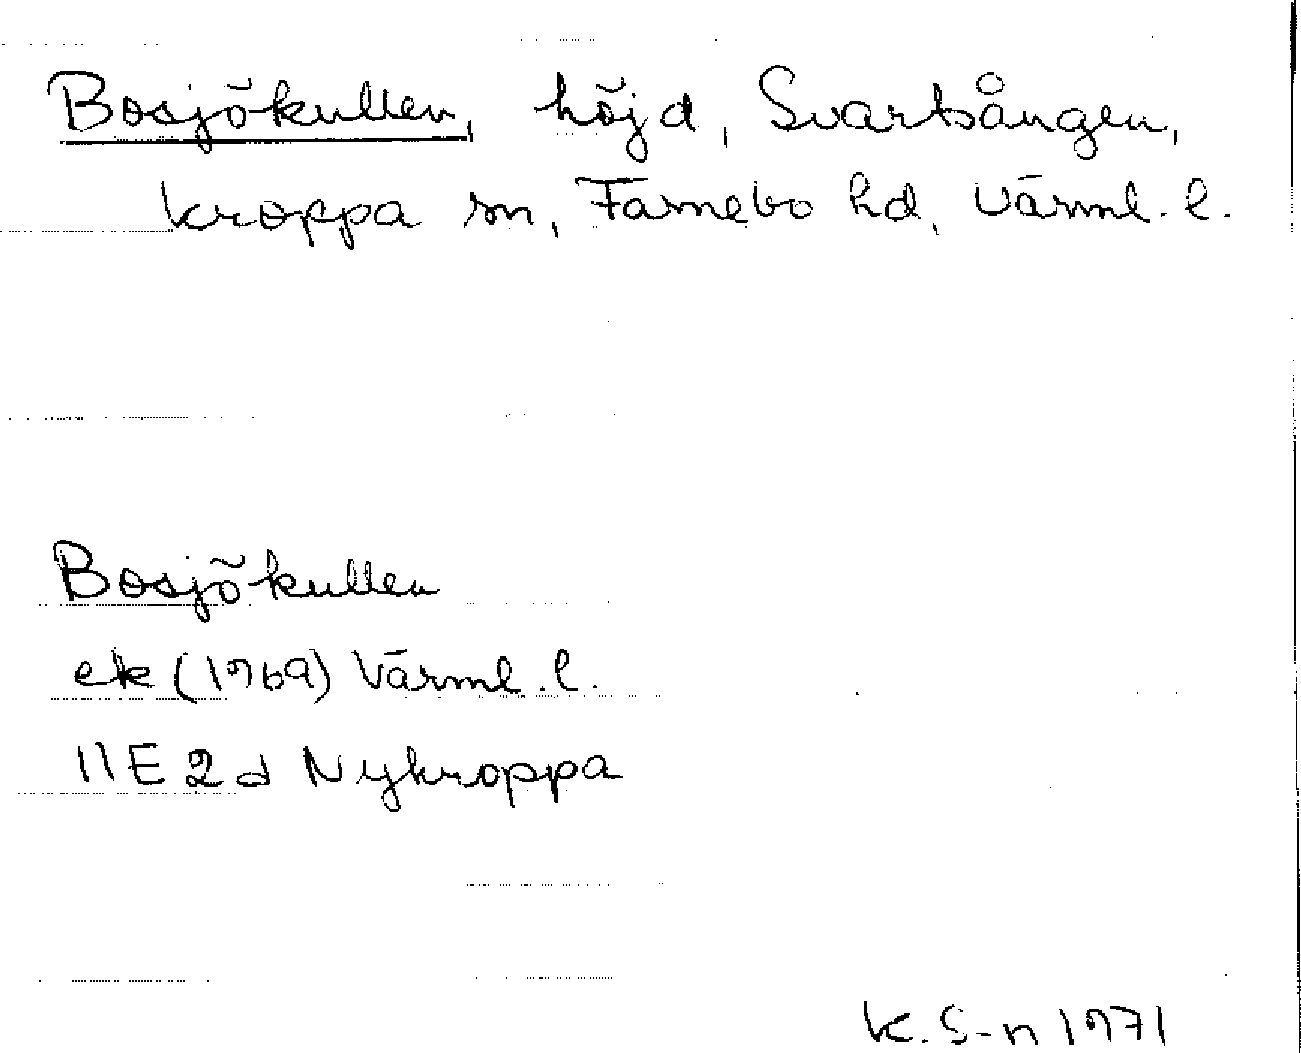 Bosjökullen, höjd, Svartsången,
Kroppa sn, Färnebo hd, Värml. l.
Bosjökullen
ek (1969) Värml. l.
11E 2d Nykroppa
K. S-n 1971